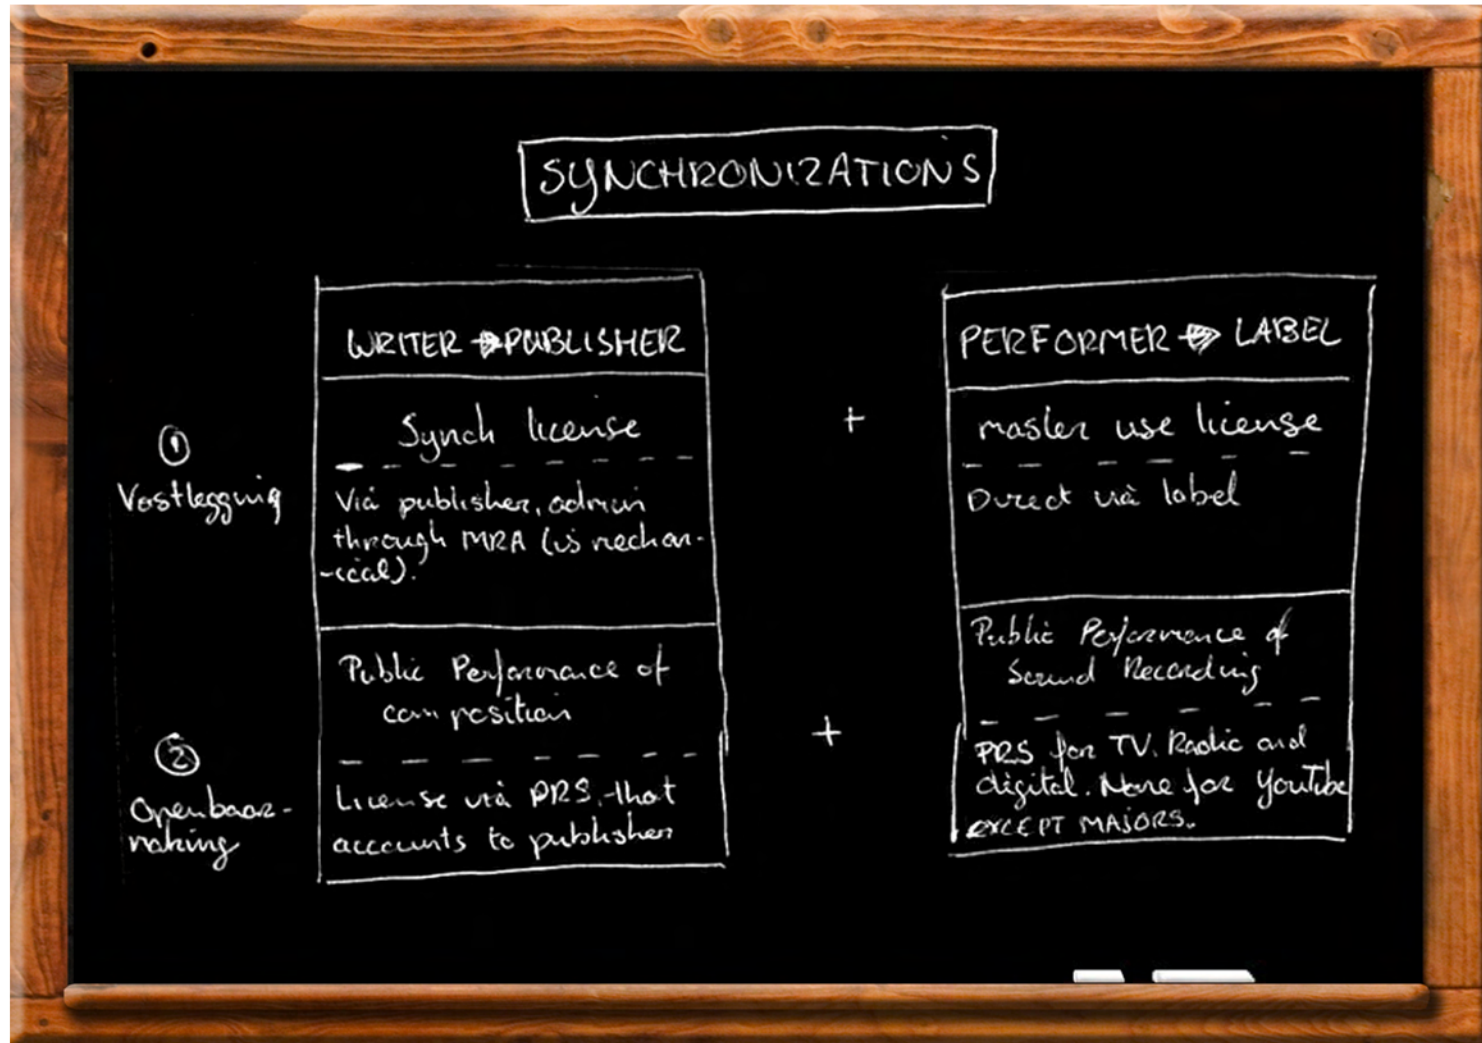 SYNCHRONIZATIONS
WRITER PUBLISHER
Synch license
Via publisher, admin
through MRA (is mechan-
-ical).
Public Performance of
composition
License via PRS, that
accounts to publisher
+
+
PERFORMER LABEL
master use license
Direct via label
Public Performance of
Sound Recording
PRS for TV. Radio and
digital. None for YouTube
EXCEPT MAJORS.
1
Vastlegging
2
Openbaar-
making